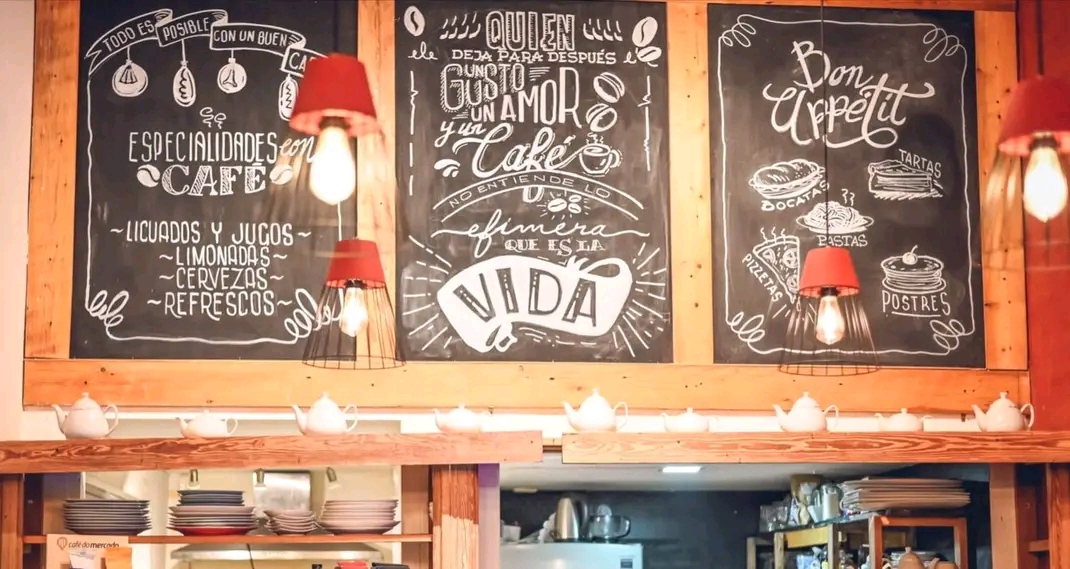 TODO ES POSIBLE CON UN BUEN
ESPECIALIDADES con
CAFÉ
~LICUADOS Y JUGOS~
~LIMONADAS~
~CERVEZAS~
~REFRESCOS~
QUIEN
DEJA PARA DESPUÉS
UN GUSTO
UN AMOR
y un
Café
NO ENTIENDE LO
efímera
QUE ES LA
VIDA
Bon
Appétit
BOCATAS
TARTAS
PASTAS
PIZZETAS
POSTRES
café do mercado